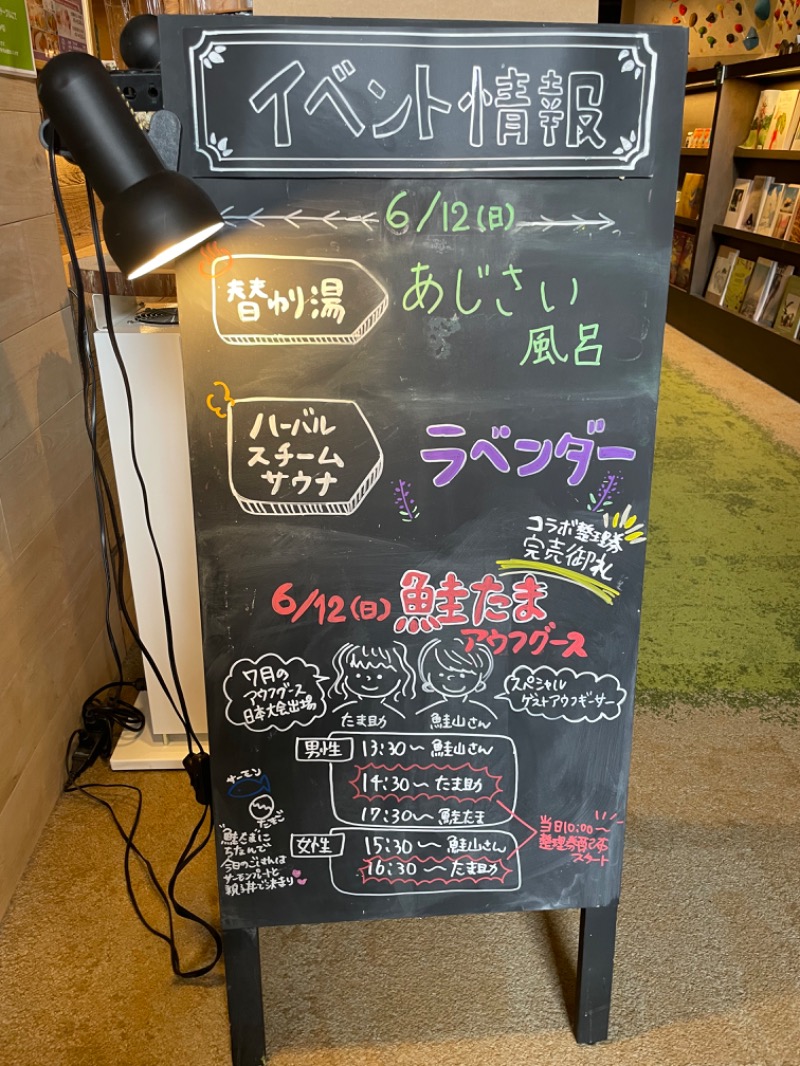 イベント情報
6/12(日)
替わり湯
あじさい
風呂
ハーバル
スチーム
サウナ
ラベンダー
コラボ整理券
完売御礼
6/12(日) 鮭たま
アウフグース
7月の
アウフグース
日本大会出場
スペシャル
ゲストアウフギーサー
たま助
鮭山さん
男性 13:30〜 鮭山さん
14:30〜 たま助
17:30〜 鮭たま
女性 15:30〜 鮭山さん
16:30〜 たま助
当日10:00〜
整理券配布
スタート
サーモン
鮭たまに
ちなんで
今日のごはんは
親子丼で決まり